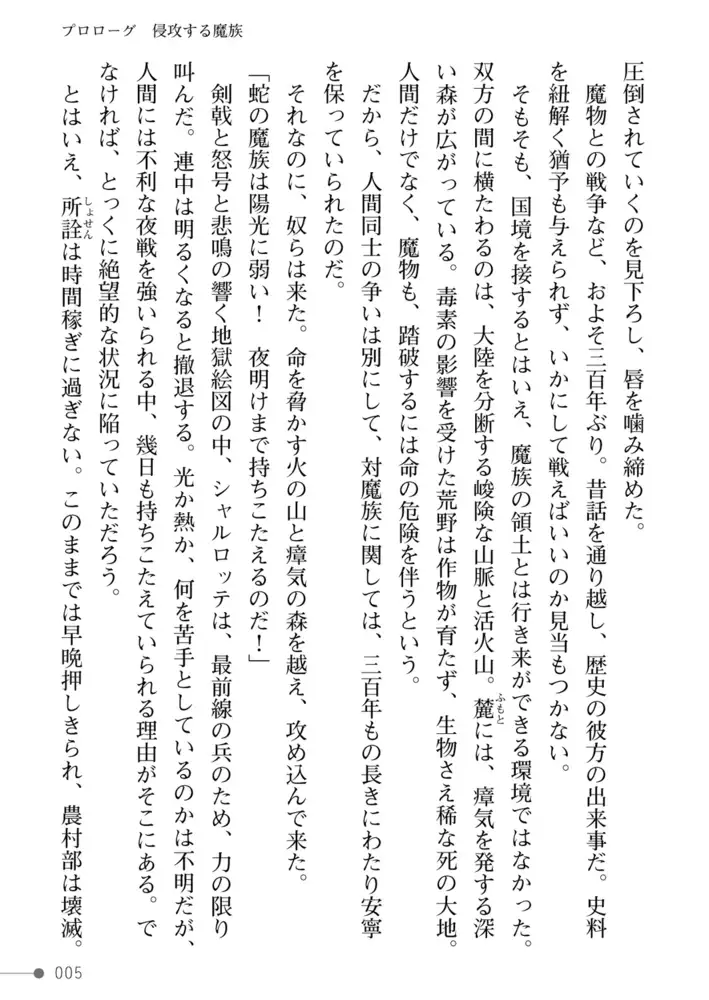 プロローグ　侵攻する魔族
圧倒されていくのを見下ろし、唇を噛み締めた。
　魔物との戦争など、およそ三百年ぶり。昔話を通り越し、歴史の彼方の出来事だ。史料
を紐解く猶予も与えられず、いかにして戦えばいいのか見当もつかない。
　そもそも、国境を接するとはいえ、魔族の領土とは行き来ができる環境ではなかった。
双方の間に横たわるのは、大陸を分断する峻険な山脈と活火山。麓には、瘴気を発する深
い森が広がっている。毒素の影響を受けた荒野は作物が育たず、生物さえ稀な死の大地。
人間だけでなく、魔物も、踏破するには命の危険を伴うという。
　だから、人間同士の争いは別にして、対魔族に関しては、三百年もの長きにわたり安寧
を保っていられたのだ。
　それなのに、奴らは来た。命を脅かす火の山と瘴気の森を越え、攻め込んで来た。
「蛇の魔族は陽光に弱い！　夜明けまで持ちこたえるのだ！」
　剣戟と怒号と悲鳴の響く地獄絵図の中、シャルロッテは、最前線の兵のため、力の限り
叫んだ。連中は明るくなると撤退する。光か熱か、何を苦手としているのかは不明だが、
人間には不利な夜戦を強いられる中、幾日も持ちこたえていられる理由がそこにある。で
なければ、とっくに絶望的な状況に陥っていただろう。
　とはいえ、所詮は時間稼ぎに過ぎない。このままでは早晩押しきられ、農村部は壊滅。
ふもと
しょせん
005